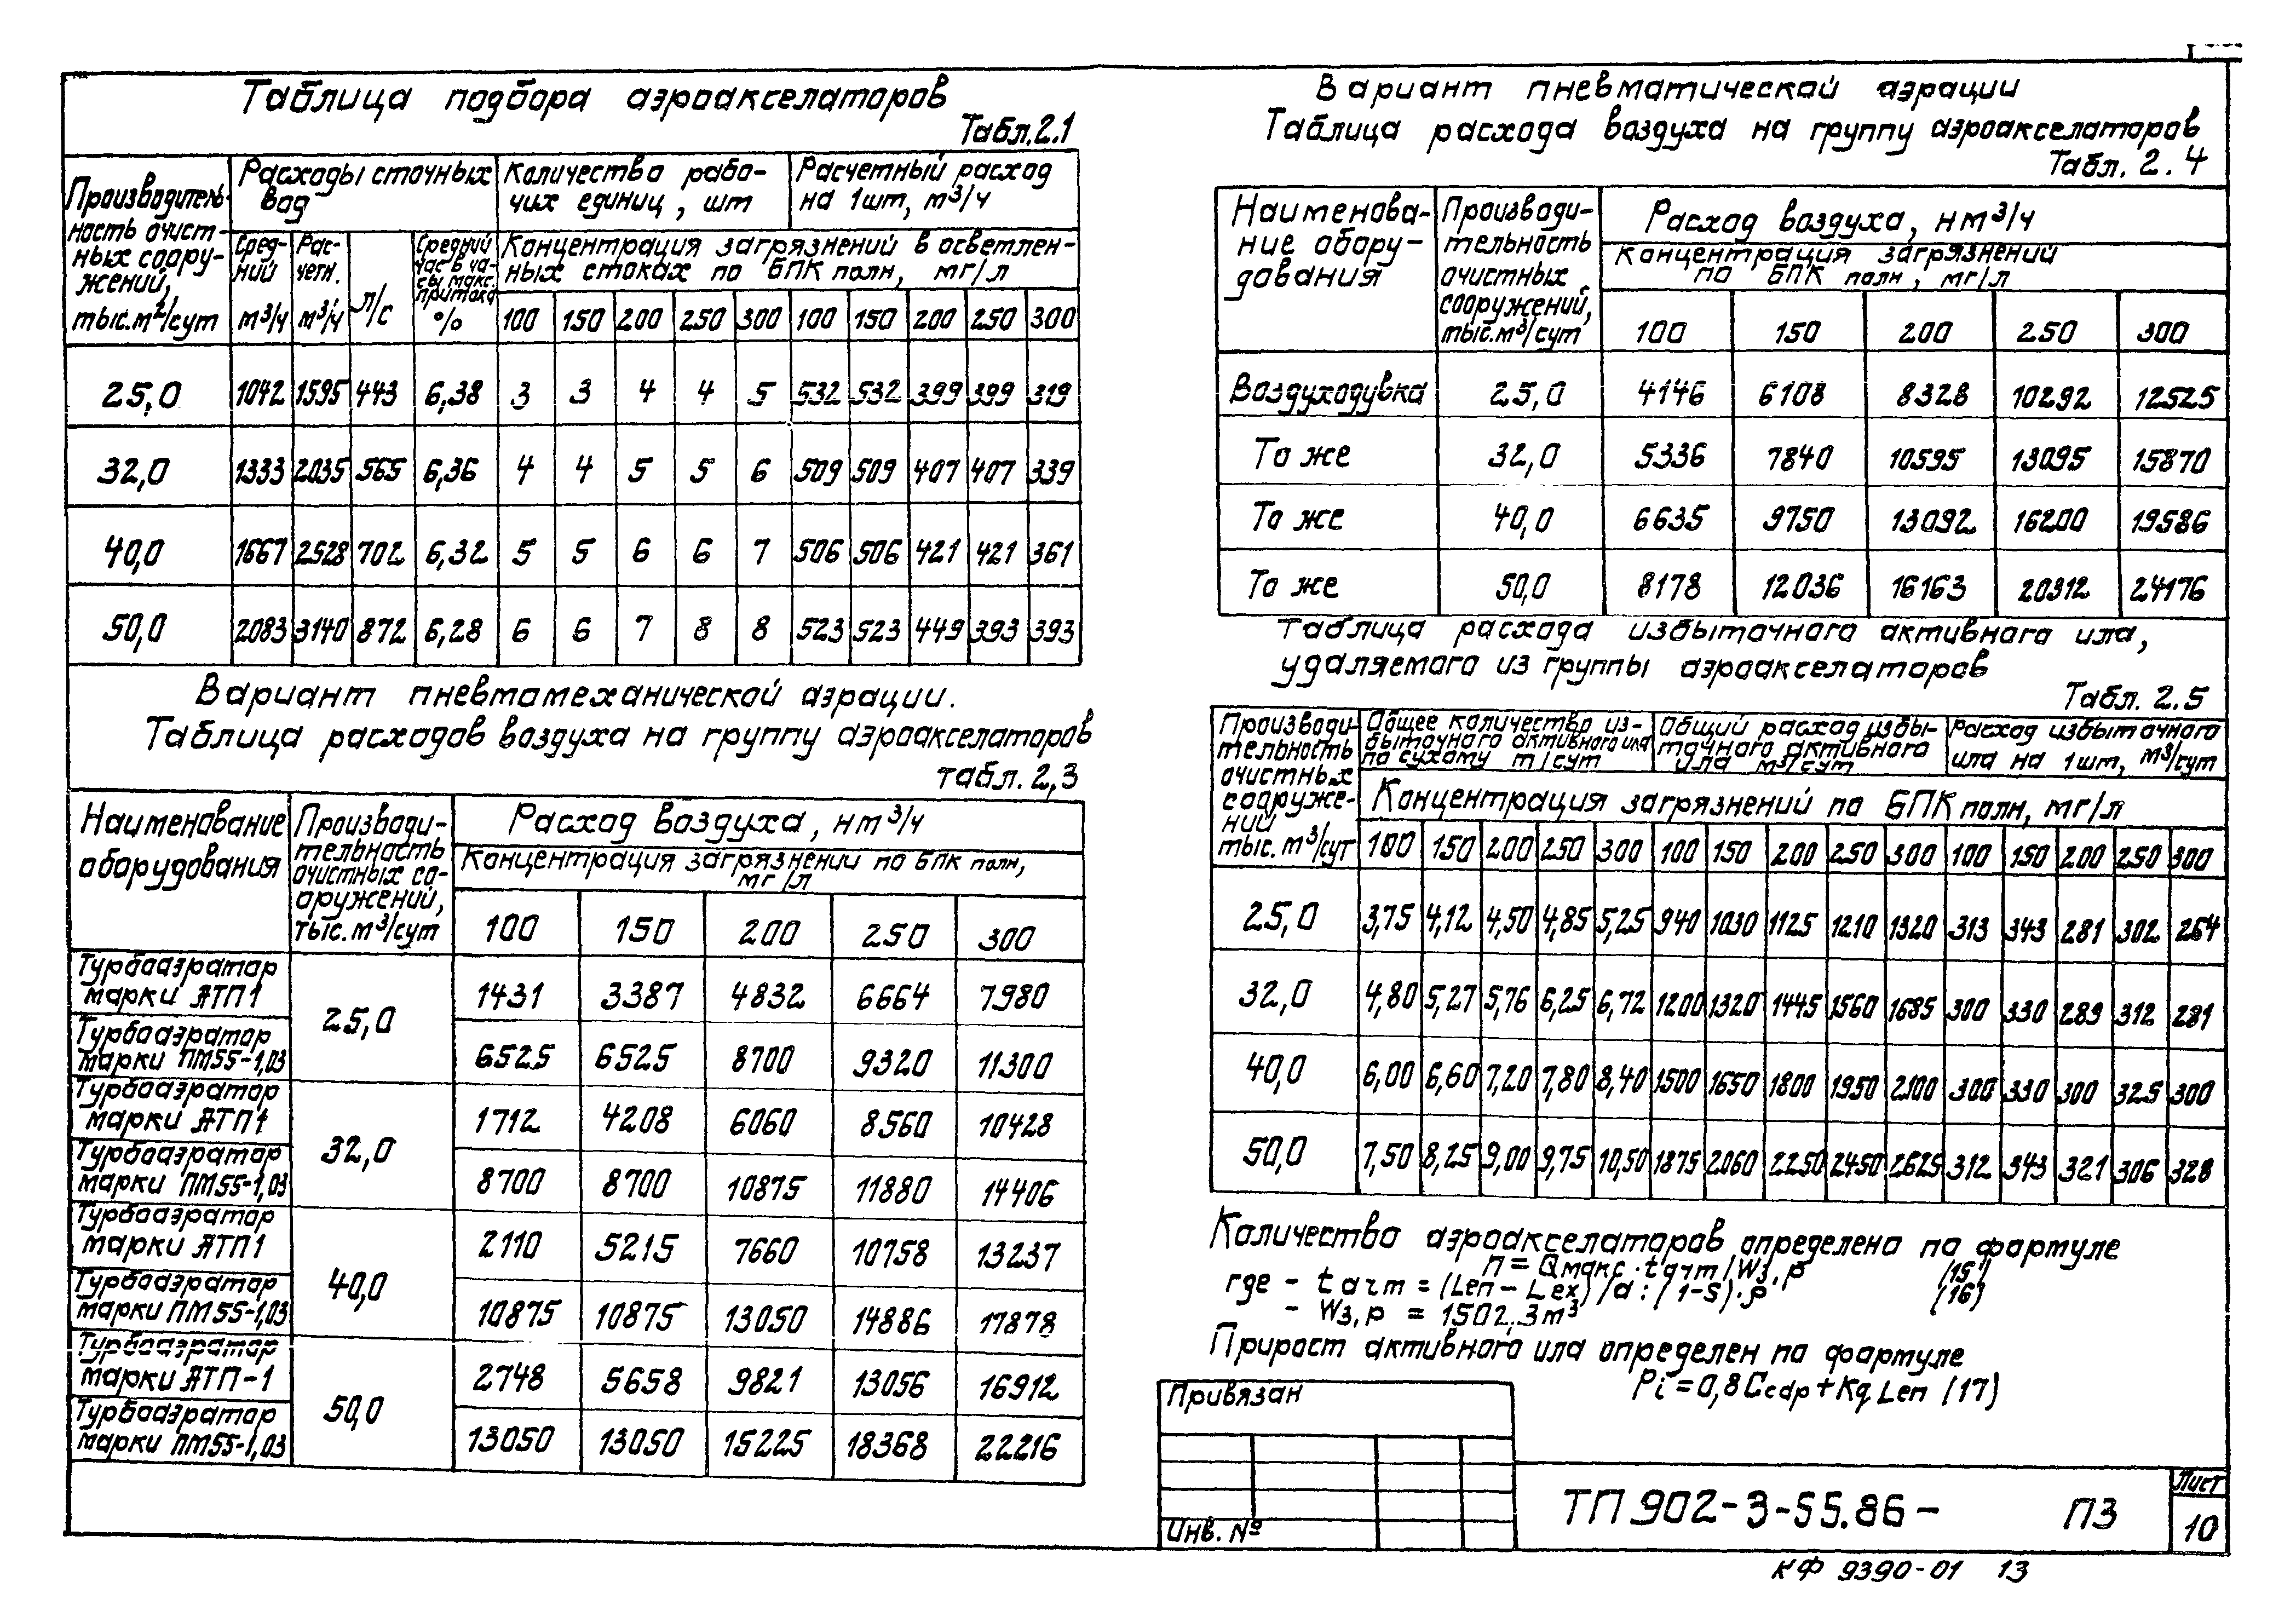 Таблица подбора аэроакселаторов
Табл.2.1
Производитель-
ность очист-
ных соору-
жений,
тыс.м²/сут
Расходы сточных
вод
Количество рабо-
чих единиц, шт
Расчетный расход
на 1шт, м³/ч
Сред-
ний
м³/ч
Рас-
четн.
м³/ч
л/с
Средний
час в ча-
сы макс.
притока
%
Концентрация загрязнений в осветлен-
ных стоках по БПК полн, мг/л
100 150 200 250 300 100 150 200 250 300
25,0 1042 1595 443 6,38 3 3 4 4 5 532 532 399 399 319
32,0 1333 2035 565 6,36 4 4 5 5 6 509 509 407 407 339
40,0 1667 2528 702 6,32 5 5 6 6 7 506 506 421 421 361
50,0 2083 3140 872 6,28 6 6 7 8 8 523 523 449 393 393
Вариант пневмомеханической аэрации.
Таблица расходов воздуха на группу аэроакселаторов
табл. 2,3
Наименование
оборудования
Производи-
тельность
очистных со-
оружений,
тыс. м³/сут
Расход воздуха, нм³/ч
Концентрация загрязнении по БПК полн,
мг/л
100 150 200 250 300
Турбоаэратор
марки АТП1
25,0
1431 3387 4832 6664 7980
Турбоаэратор
марки ПМ55-1,03
6525 6525 8700 9320 11300
Турбоаэратор
марки АТП1
32,0
1712 4208 6060 8560 10428
Турбоаэратор
марки ПМ55-1,03
8700 8700 10875 11880 14406
Турбоаэратор
марки АТП1
40,0
2110 5215 7660 10758 13237
Турбоаэратор
марки ПМ55-1,03
10875 10875 13050 14886 17878
Турбоаэратор
марки АТП-1
50,0
2748 5658 9821 13056 16912
Турбоаэратор
марки ПМ55-1,03
13050 13050 15225 18368 22216
Вариант пневматической аэрации
Таблица расхода воздуха на группу аэроакселаторов
Табл. 2.4
Наименова-
ние обору-
дования
Производи-
тельность
очистных
сооружений,
тыс.м³/сут
Расход воздуха, нм³/ч
Концентрация загрязнений
по БПК полн, мг/л
100 150 200 250 300
Воздуходувка 25,0 4146 6108 8328 10292 12525
То же 32,0 5336 7840 10595 13095 15870
То же 40,0 6635 9750 13092 16200 19586
То же 50,0 8178 12036 16163 20312 24176
Таблица расхода избыточного активного ила,
удаляемого из группы аэроакселаторов
Табл. 2.5
Производи-
тельность
очистных
сооруже-
ний
тыс. м³/сут
Общее количество из-
быточного активного ила
по сухому т/сут
Общий расход избы-
точного активного
ила м³/сут
Расход избыточного
ила на 1шт, м³/сут
Концентрация загрязнений по БПК полн, мг/л
100 150 200 250 300 100 150 200 250 300 100 150 200 250 300
25,0 3,75 4,12 4,50 4,85 5,25 940 1030 1125 1210 1320 313 343 281 302 264
32,0 4,80 5,27 5,76 6,25 6,72 1200 1320 1445 1560 1685 300 330 289 312 281
40,0 6,00 6,60 7,20 7,80 8,40 1500 1650 1800 1950 2100 300 330 300 325 300
50,0 7,50 8,25 9,00 9,75 10,50 1875 2060 2250 2450 2625 312 343 321 306 328
Количество аэроакселаторов определено по формуле
n = Qмакс · tатm / Wз,р (15)
где - tатm = (Len - Lex) / a : (1-S) · ρ (16)
- Wз,р = 1502,3 м³
Прирост активного ила определен по формуле
Pi = 0,8 Ccdp + Kq Len (17)
Привязан
Инв. №
ТП 902-3-55.86- ПЗ
Лист
10
КФ 9390-01 13